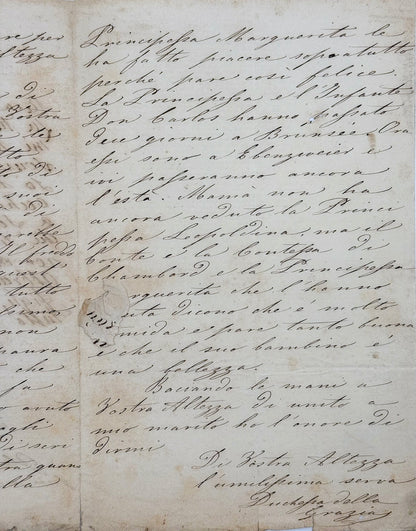 re per
Altezza
di
Vostra
di
tto
di
di
Il freddo
quest
tutto
ssimo
non
aura
che
fa
avuto
agli
di seri
tra quan
lla
Principessa Margherita le
ha fatto piacere sopratutto
perchè pare così felice.
La Principessa e l'Infante
Don Carlos hanno passato
due giorni a Brunsee. Ora
essi sono a Ebenzweier e
vi passeranno ancora
l'està. Mamà non ha
ancora veduto la Princi
pessa Leopoldina, ma il
Conte e la Contessa di
Chambord e la Principessa
argherita che l'hanno
uta dicono che è molto
mida e pare tanto buona
e che il suo bambino è
una bellezza.
Baciando le mani a
Vostra Altezza di unito a
mio marito ho l'onore di
dirmi
Di Vostra Altezza
l'umilissima serva
Duchessa della
Grazia